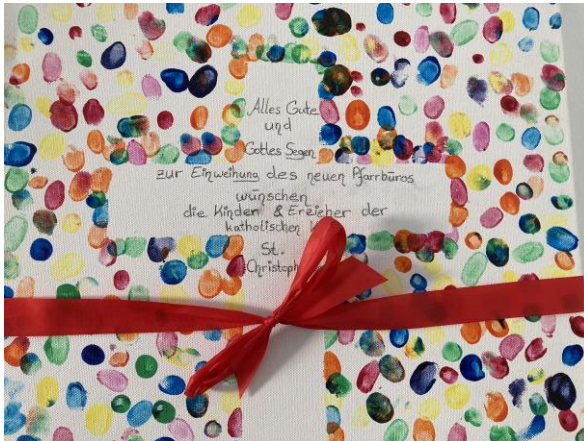 Alles Gute
und
Gottes Segen
zur Einweihung des neuen Pfarrbüros
wünschen
die Kinder & Erzieher der
katholischen
St.